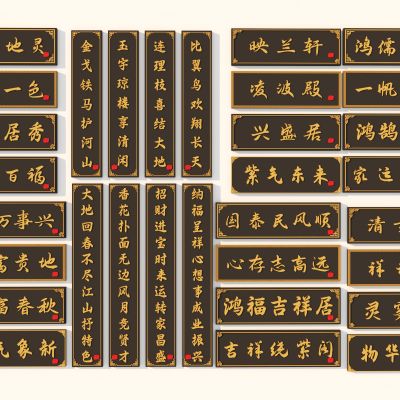 地灵
一色
居秀
百福
万事兴
富贵地
富春秋
气象新
金戈铁马护河山
玉宇琼楼享清闲
连理枝喜结大地
比翼鸟欢翔长天
大地回春不尽江山抒特色
香花扑面无边风月竞贤才
招财进宝时来运转家昌盛
纳福呈祥心想事成业振兴
映兰轩
凌波殿
兴盛居
紫气东来
国泰民风顺
心存志高远
鸿福吉祥居
吉祥绕紫阁
鸿儒
一帆
鸿鹄
家运
清
祥
灵
物华